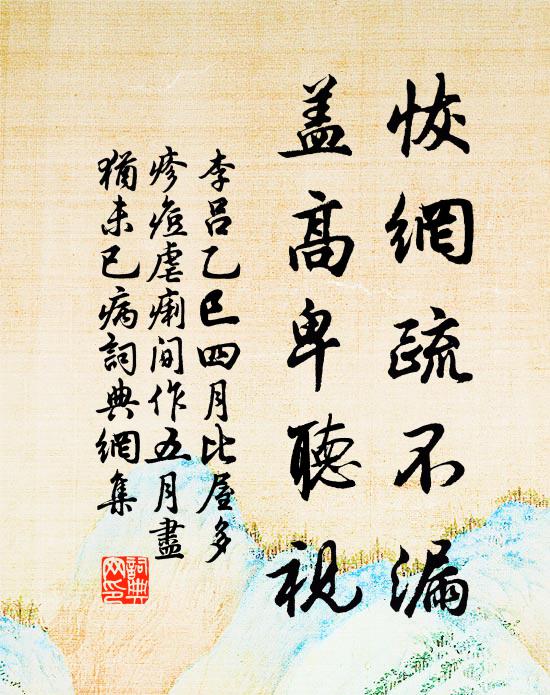 恢網疏不漏
蓋高卑聽視
李呂乙巳四月比屋多
疹痘虐痢间作五月盡
猶未已病詞典網集
詞典
网印